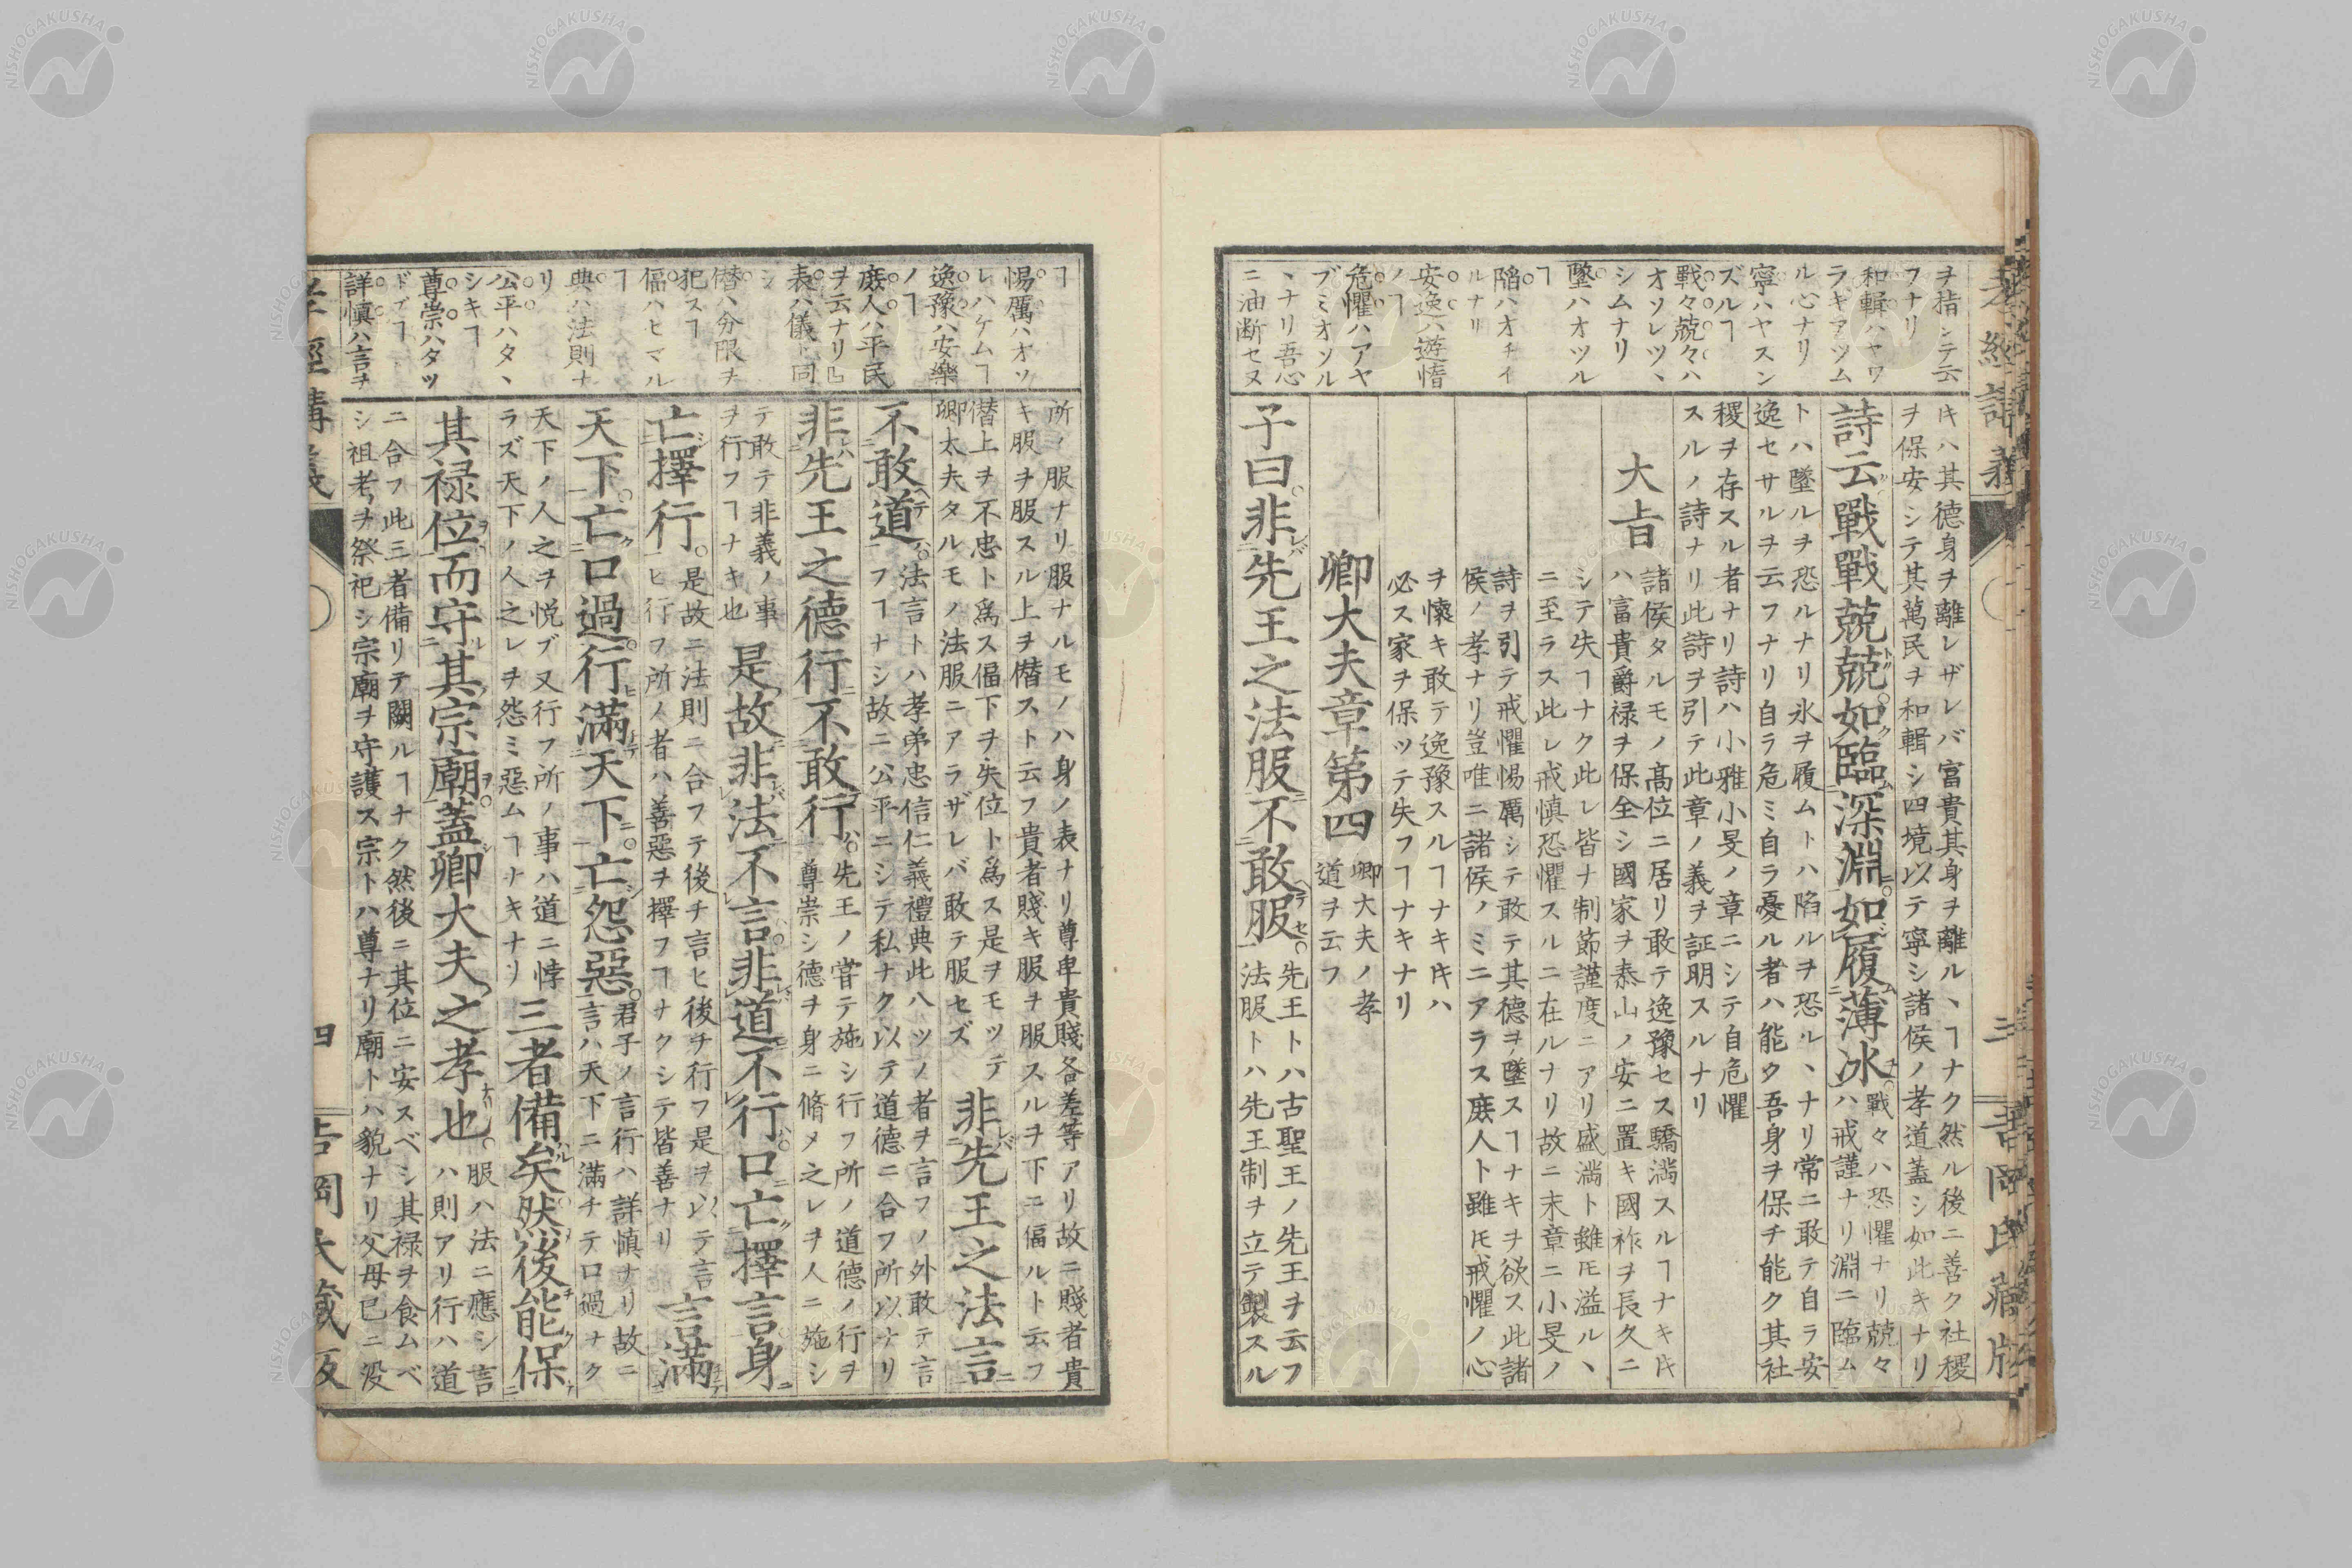 ヲ稽シテ云
フナリ
和輯ハヤワ
ラキアツム
ル心ナリ
寧ハヤスン
ズルヿ
戰々兢々ハ
オソレツヽ
シムナリ
墜ハオツル
ヿ
陷ハオチイ
ルナリ
安逸ハ遊惰
ノヿ
危懼ハアヤ
ブミオソル
ヽナリ吾心
ニ油断セヌ
キハ其德身ヲ離レザレバ富貴其身ヲ離ルヽヿナク然ル後ニ善ク社稷
ヲ保安シテ其萬民ヲ和輯シ四境以テ寧シ諸侯ノ孝道蓋シ如此キナリ
詩云戰戰兢兢如臨深淵如履薄冰
戰々ハ恐懼ナリ兢々
ハ戒謹ナリ淵ニ臨ム
トハ墜ルヲ恐ルナリ氷ヲ履ムトハ陷ルヲ恐ルヽナリ常ニ敢テ自ラ安
逸セサルヲ云フナリ自ラ危ミ自ラ憂ル者ハ能ク吾身ヲ保チ能ク其社
稷ヲ存スル者ナリ詩ハ小雅小旻ノ章ニシテ自危懼
スルノ詩ナリ此詩ヲ引テ此章ノ義ヲ証明スルナリ
大旨
諸侯タルモノ高位ニ居リ敢テ逸豫セス驕滿スルヿナキキ
ハ富貴爵禄ヲ保全シ國家ヲ泰山ノ安ニ置キ國祚ヲ長久ニ
シテ失ヿナク此レ皆ナ制節謹度ニアリ盛滿ト雖モ溢ルヽ
ニ至ラス此レ戒慎恐懼スルニ在ルナリ故ニ末章ニ小旻ノ
詩ヲ引テ戒懼惕厲シテ敢テ其德ヲ墜スヿナキヲ欲ス此諸
侯ノ孝ナリ豈唯ニ諸侯ノミニアラス庶人ト雖モ戒懼ノ心
ヲ懷キ敢テ逸豫スルヿナキキハ
必ス家ヲ保ツテ失フヿナキナリ
卿大夫章第四
卿大夫ノ孝
道ヲ云フ
子曰非先王之法服不敢服
先王トハ古聖王ノ先王ヲ云フ
法服トハ先王制ヲ立テ製スル
三
ヿ
惕厲ハオソ
レハケムヿ
逸豫ハ安樂
ノヿ
庶人ハ平民
ヲ云ナリ
表ハ儀ト同
シ
僣ハ分限ヲ
犯スヿ
偪ハヒマル
ヿ
典ハ法則ナ
リ
公平ハタヽ
シキヿ
尊崇ハタツ
ドブヿ
詳慎ハ言ヲ
所ノ服ナリ服ナルモノハ身ノ表ナリ尊卑貴賤各差等アリ故ニ賤者貴
キ服ヲ服スル上ヲ僣スト云フ貴者賤キ服ヲ服スルヲ下ニ偪ルト云フ
僣上ヲ不忠ト爲ス偪下ヲ失位ト爲ス是ヲモツテ
卿太夫タルモノ法服ニアラザレバ敢テ服セズ
非先王之法言
不敢道
法言トハ孝弟忠信仁義禮典此八ツノ者ヲ言フノ外敢テ言
フヿナシ故ニ公平ニシテ私ナク以テ道德ニ合フ所以ナリ
非先王之德行不敢行
先王ノ嘗テ施シ行フ所ノ道德ノ行ヲ
尊崇シ德ヲ身ニ脩メ之レヲ人ニ施シ
テ敢テ非義ノ事
ヲ行フヿナキ也
是故非法不言非道不行口亡擇言身
亡擇行
是故ニ法則ニ合フテ後チ言ヒ後チ行フ是ヲ以テ言
ヒ行フ所ノ者ハ善惡ヲ擇フヿナクシテ皆善ナリ
言滿
天下亡口過行滿天下亡怨惡
君子ノ言行ハ詳慎ナリ故ニ
言ハ天下ニ滿チテ口過ナク
天下ノ人之ヲ悦ブ又行フ所ノ事ハ道ニ悖
ラズ天下ノ人之レヲ怨ミ惡ムヿナキナリ
三者備矣然後能保
其禄位而守其宗廟蓋卿大夫之孝也
服ハ法ニ應シ言
ハ則アリ行ハ道
ニ合フ此三者備リテ闕ルヿナク然後ニ其位ニ安スベシ其禄ヲ食ムベ
シ祖考ヲ祭祀シ宗廟ヲ守護ス宗トハ尊ナリ廟トハ貌ナリ父母已ニ没
四